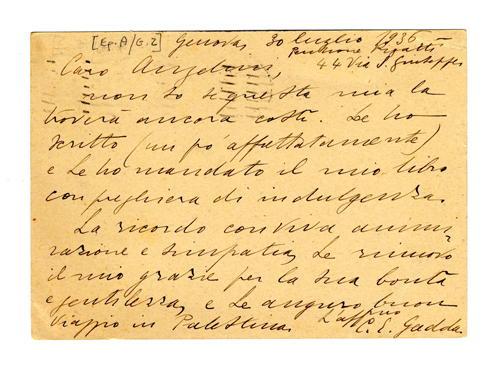 [Ep. A/G. 2] Genova, 30 luglio 1936
Pensione
44 Via S. Giuseppe
Caro Angelini,
non so se questa mia la
troverà ancora costì. Le ho
scritto (un pó affrettatamente)
e Le ho mandato il mio libro
con preghiera di indulgenza.
La ricordo con viva ammi-
razione e simpatia, Le rinnovo
il mio grazie per la sua bontà
e gentilezza, e Le auguro buon
viaggio in Palestina.
L'aff.mo
C. E. Gadda.